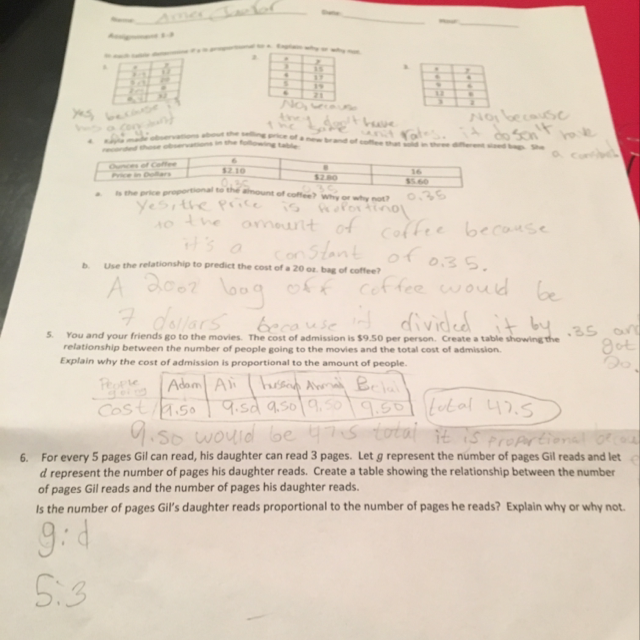 Name
Date:
Hour:
Assignment 1-3
In each table determine if y is proportional to x. Explain why or why not.
1.
2.
3.
x y
x y
x y
3 15
4 17
5 19
6 21
6 4
9 6
12 8
3 2
yes, because
has a constant
NO, because
they don't have
the same unit rates.
NO, because
it doesn't have
a constant
4. Kayla made observations about the selling price of a new brand of coffee that sold in three different sized bags. She
recorded those observations in the following table:
Ounces of Coffee 6 8 16
Price in Dollars $2.10 $2.80 $5.60
0.35 0.35 0.35
a. Is the price proportional to the amount of coffee? Why or why not?
Yes, the price is
to the amount of coffee because
it's a constant of 0.35.
b. Use the relationship to predict the cost of a 20 oz. bag of coffee?
A 20oz bag off coffee would be
7 dollars because it divided it by .35 and
got
20.
5. You and your friends go to the movies. The cost of admission is $9.50 per person. Create a table showing the
relationship between the number of people going to the movies and the total cost of admission.
Explain why the cost of admission is proportional to the amount of people.
People going Adam Ali
Cost 9.50 9.50 9.50 9.50 9.50 total 47.5
9.50 would be 47.5 total it is proportional
6. For every 5 pages Gil can read, his daughter can read 3 pages. Let g represent the number of pages Gil reads and let
d represent the number of pages his daughter reads. Create a table showing the relationship between the number
of pages Gil reads and the number of pages his daughter reads.
Is the number of pages Gil's daughter reads proportional to the number of pages he reads? Explain why or why not.
g:d
5:3